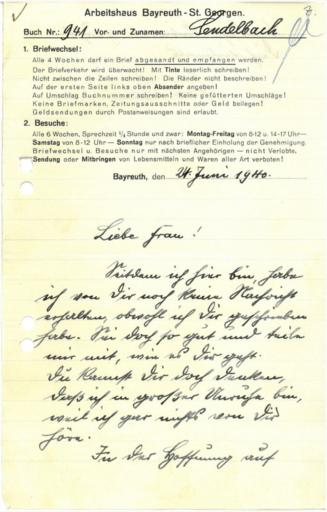 Arbeitshaus Bayreuth - St. Georgen.
Buch Nr.: 941 Vor- und Zunamen: Sendelbach
1. Briefwechsel:
Alle 4 Wochen darf ein Brief abgesandt und empfangen werden.
Der Briefverkehr wird überwacht! Mit Tinte leserlich schreiben!
Nicht zwischen die Zeilen schreiben! Die Ränder nicht beschreiben!
Auf der ersten Seite links oben Absender angeben!
Auf Umschlag Buchnummer schreiben! Keine gefütterten Umschläge!
Keine Briefmarken, Zeitungsausschnitte oder Geld beilegen!
Geldsendungen durch Postanweisungen sind erlaubt.
2. Besuche:
Alle 6 Wochen, Sprechzeit ¼ Stunde und zwar: Montag-Freitag von 8-12 u. 14-17 Uhr—
Samstag von 8-12 Uhr — Sonntag nur nach brieflicher Einholung der Genehmigung.
Briefwechsel u. Besuche nur mit nächsten Angehörigen — nicht Verlobte.
Sendung oder Mitbringen von Lebensmitteln und Waren aller Art verboten!
Bayreuth, den 24. Juni 1940.
Liebe Frau!
Seitdem ich hier bin, habe
ich von Dir noch keine Nachricht
erhalten, obwohl ich Dir geschrieben
habe. Sei doch so gut und teile
mir mit, wie es Dir geht.
Du kannst Dir doch denken,
daß ich in großer Unruhe bin,
weil ich gar nichts von Dir
höre.
In der Hoffnung auf